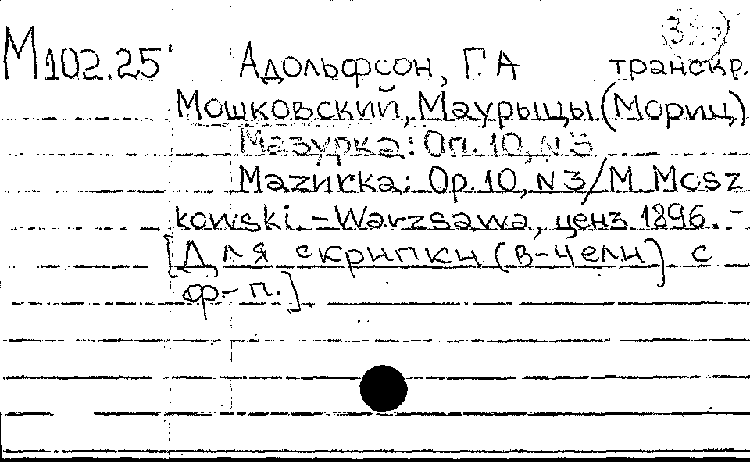 М102.25 Адольфсон, Г.А транскр.
Мошковский, Маурыцы (Мориц)
Мазурка: Оп. 10, N3
Mazurka: Op. 10, N3/M. Mosz
kowski. – Warzsawa, ценз. 1896. –
[Для скрипки (в-чели) с
ф-п.].